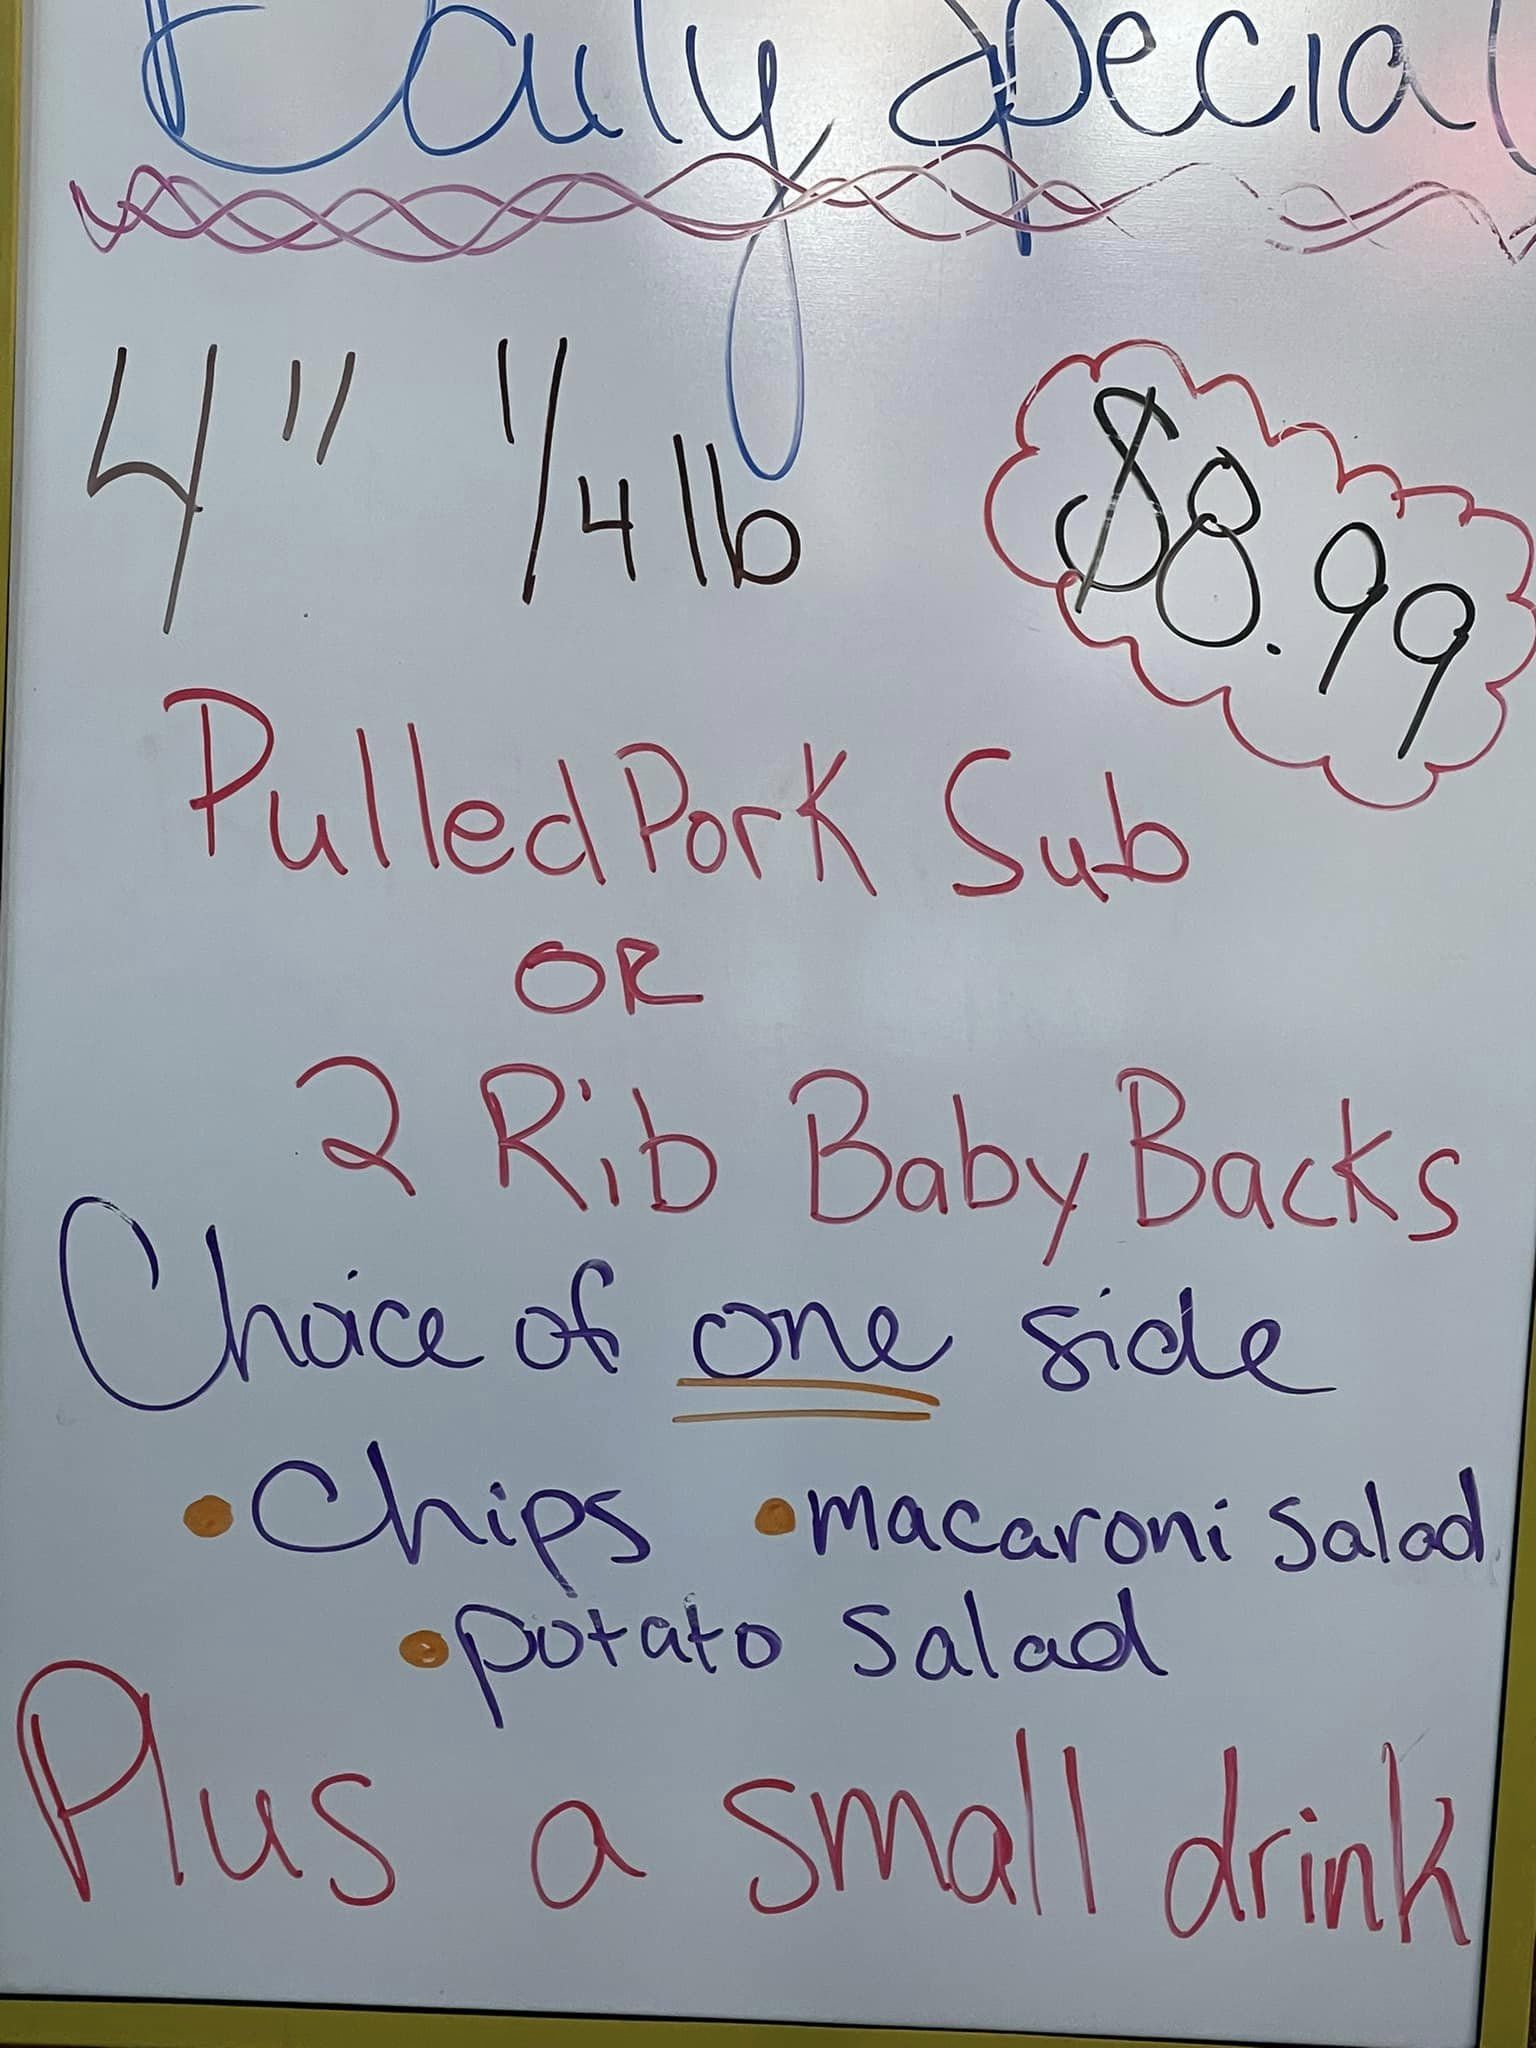 Daily Special
4" 1/4 lb
$8.99
Pulled Pork Sub
OR
2 Rib Baby Backs
Choice of one side
• Chips • macaroni salad
• potato salad
Plus a small drink